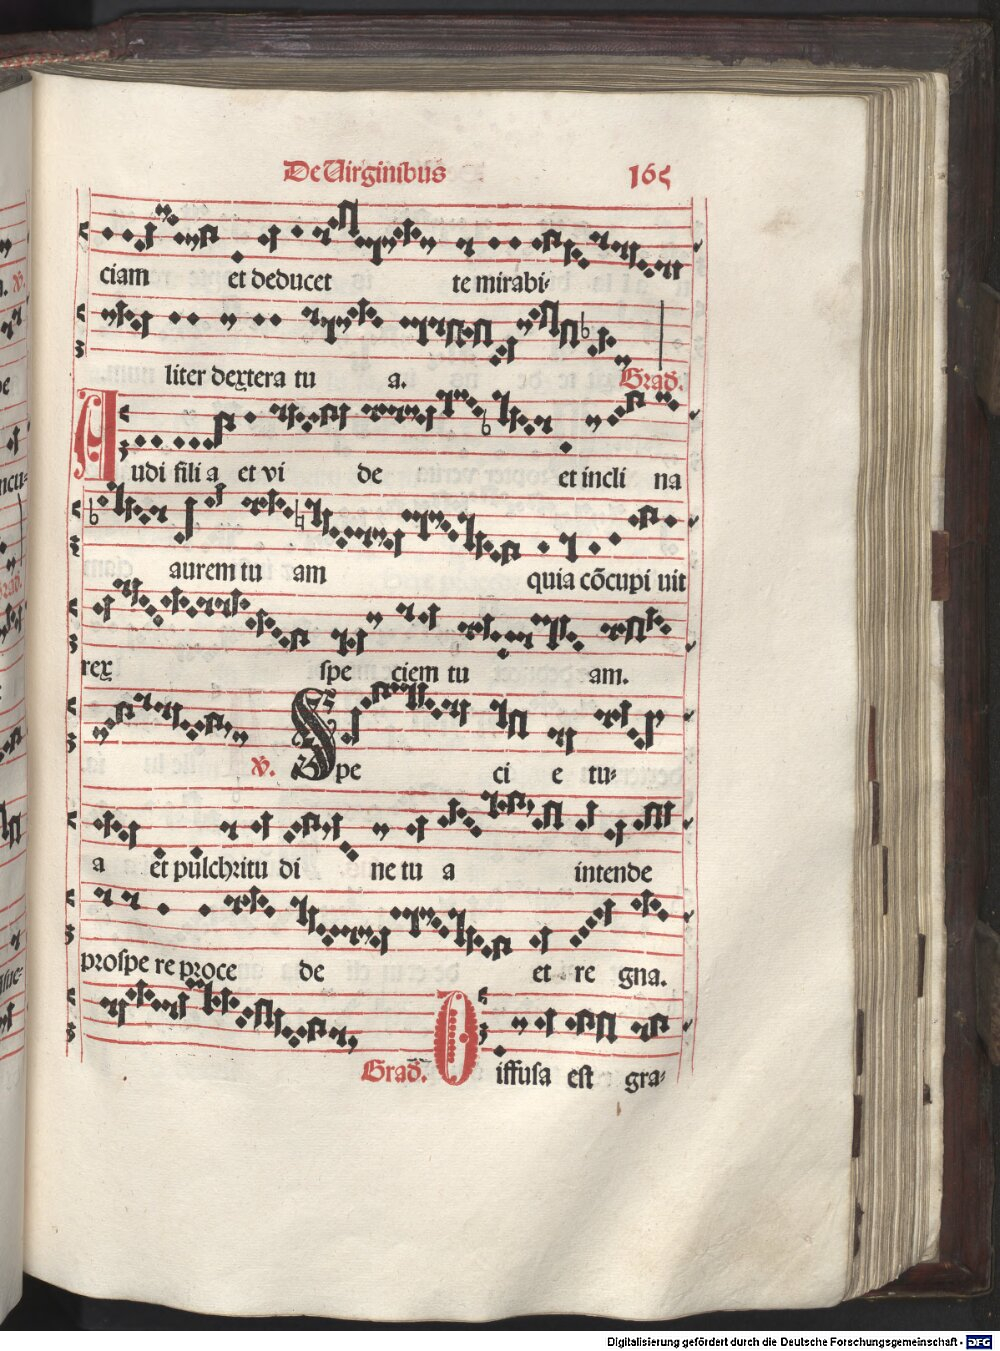 De Uirginibus 165
ciam et deducet te mirabi-
liter dextera tu a. Grad.
Audi fili a et vi de et incli na
aurem tu am quia cōcupi uit
rex spe ciem tu am.
V. Spe ci e tu-
a et pulchritu di ne tu a intende
prospe re proce de et re gna.
Grad. Diffusa est gra-
Digitalisierung gefördert durch die Deutsche Forschungsgemeinschaft - DFG